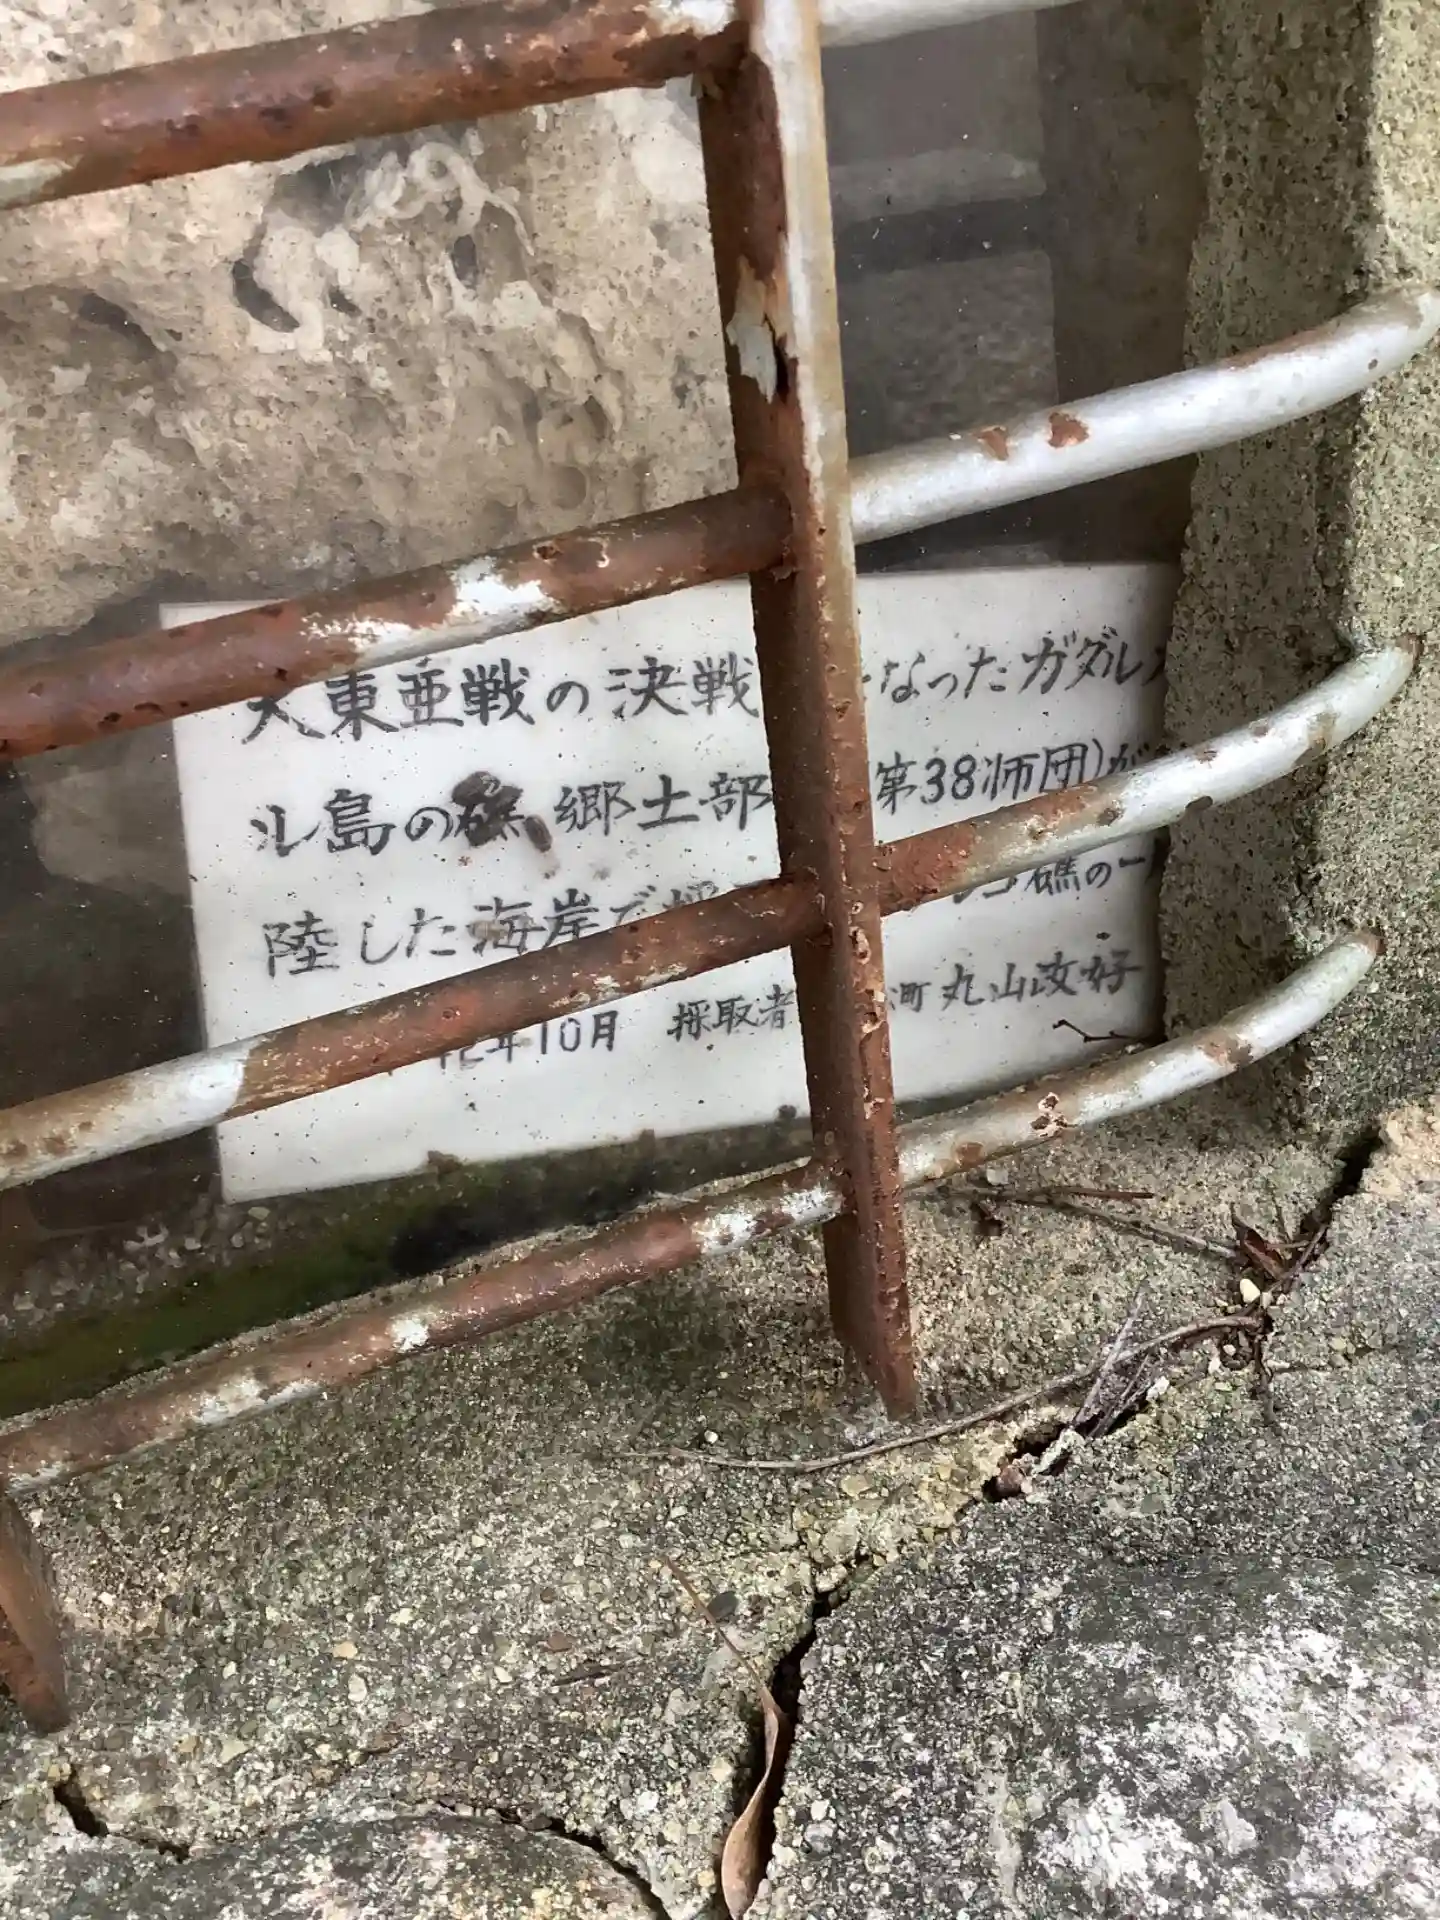 大東亜戦の決戦 なったガダル
ル島の礁 郷土部 第38师団)が
陸した海岸で採 礁の一
年10月 採取者 町 丸山政好